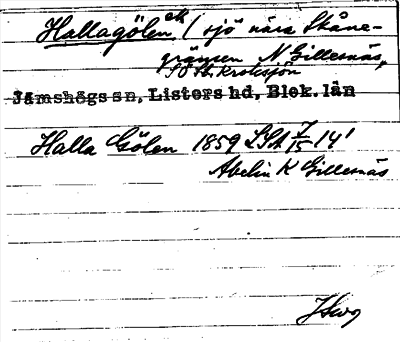 Hallagölen ek / sjö nära Skåne-
gränsen N Gillesnäs,
SO th. Kroksjön
Jämshögs sn, Listers hd, Blek. län
Halla Gölen 1859 LSA 7/15 14'
Abelin K Gillesnäs